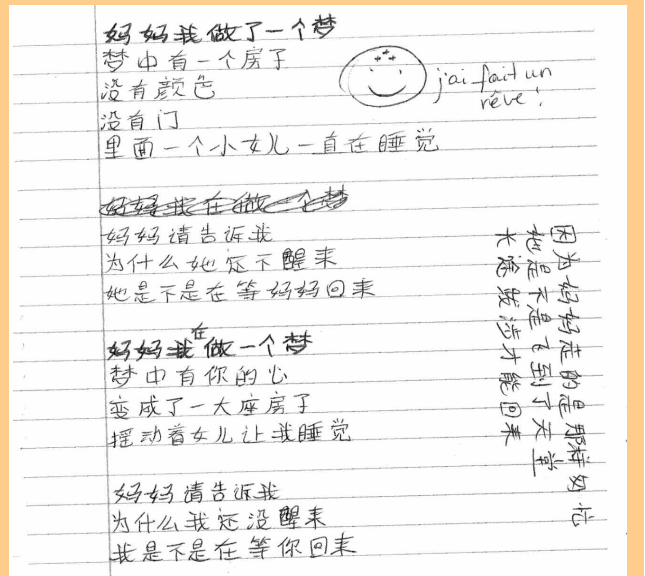 妈妈我做了一个梦
梦中有一个房子
没有颜色
没有门
里面一个小女儿一直在睡觉
j'ai fait un
rêve!
妈妈我在做一个梦
妈妈请告诉我
为什么她还不醒来
她是不是在等妈妈回来
妈妈我在做一个梦
梦中有你的心
变成了一大座房子
摇动着女儿让我睡觉
妈妈请告诉我
为什么我还没醒来
我是不是在等你回来
因为妈妈走的是那样匆忙
她是不是飞到了天堂
长途跋涉才能回来